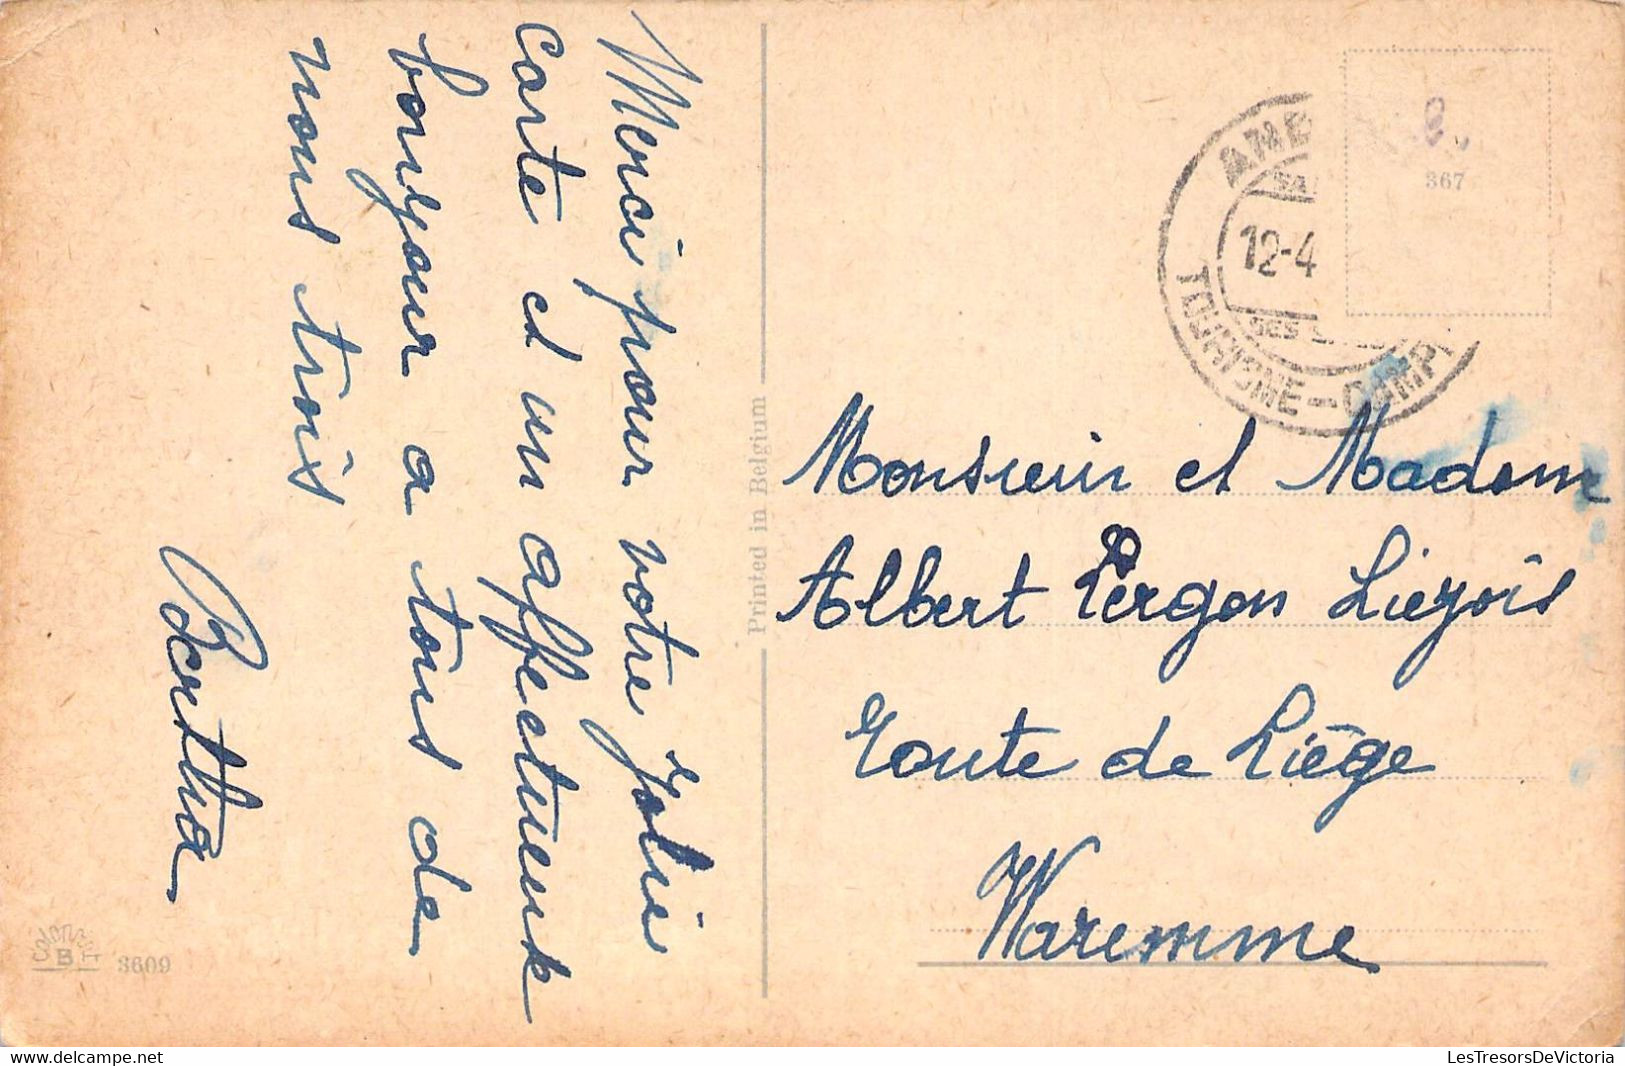 Merci pour votre jolie
carte et un affectueux
bonjour a tous de
nous trois
Bertha
Colorprint
B
3609
Printed in Belgium
367
12-4
TOURISME - CAMP
Monsieur et Madame
Albert Pergon Liezois
route de Liège
Waremme
LesTresorsDeVictoria.com